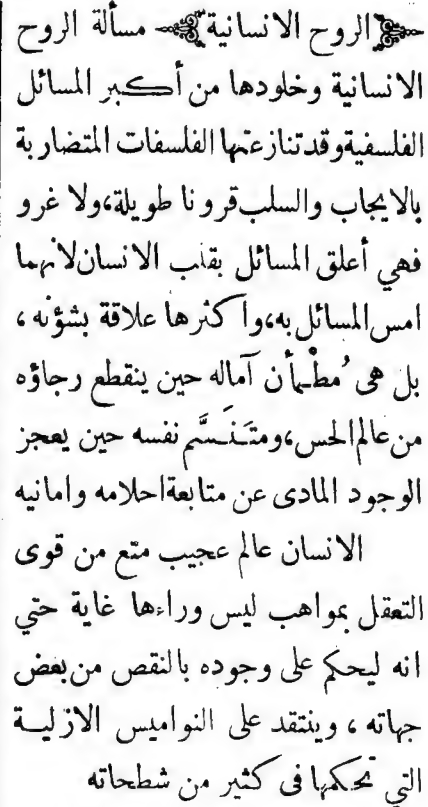 ﴿الروح الانسانية﴾ مسألة الروح
الانسانية وخلودها من أكبر المسائل
الفلسفية وقد تنازعتها الفلسفات المتضاربة
بالايجاب والسلب قرونا طويلة، ولا غرو
فهي أعلق المسائل بقلب الانسان لانهما
امس المسائل به، واكثرها علاقة بشؤنه،
بل هى مُطْمأن آماله حين ينقطع رجاؤه
من عالم الحس، ومتَنَسَّم نفسه حين يعجز
الوجود المادى عن متابعة احلامه وامانيه
الانسان عالم عجيب متع من قوى
التعقل بمواهب ليس وراءها غاية حتي
انه ليحكم على وجوده بالنقص من بعض
جهاته، وينتقد على النواميس الازلية
التي تحكمها فى كثير من شطحاته